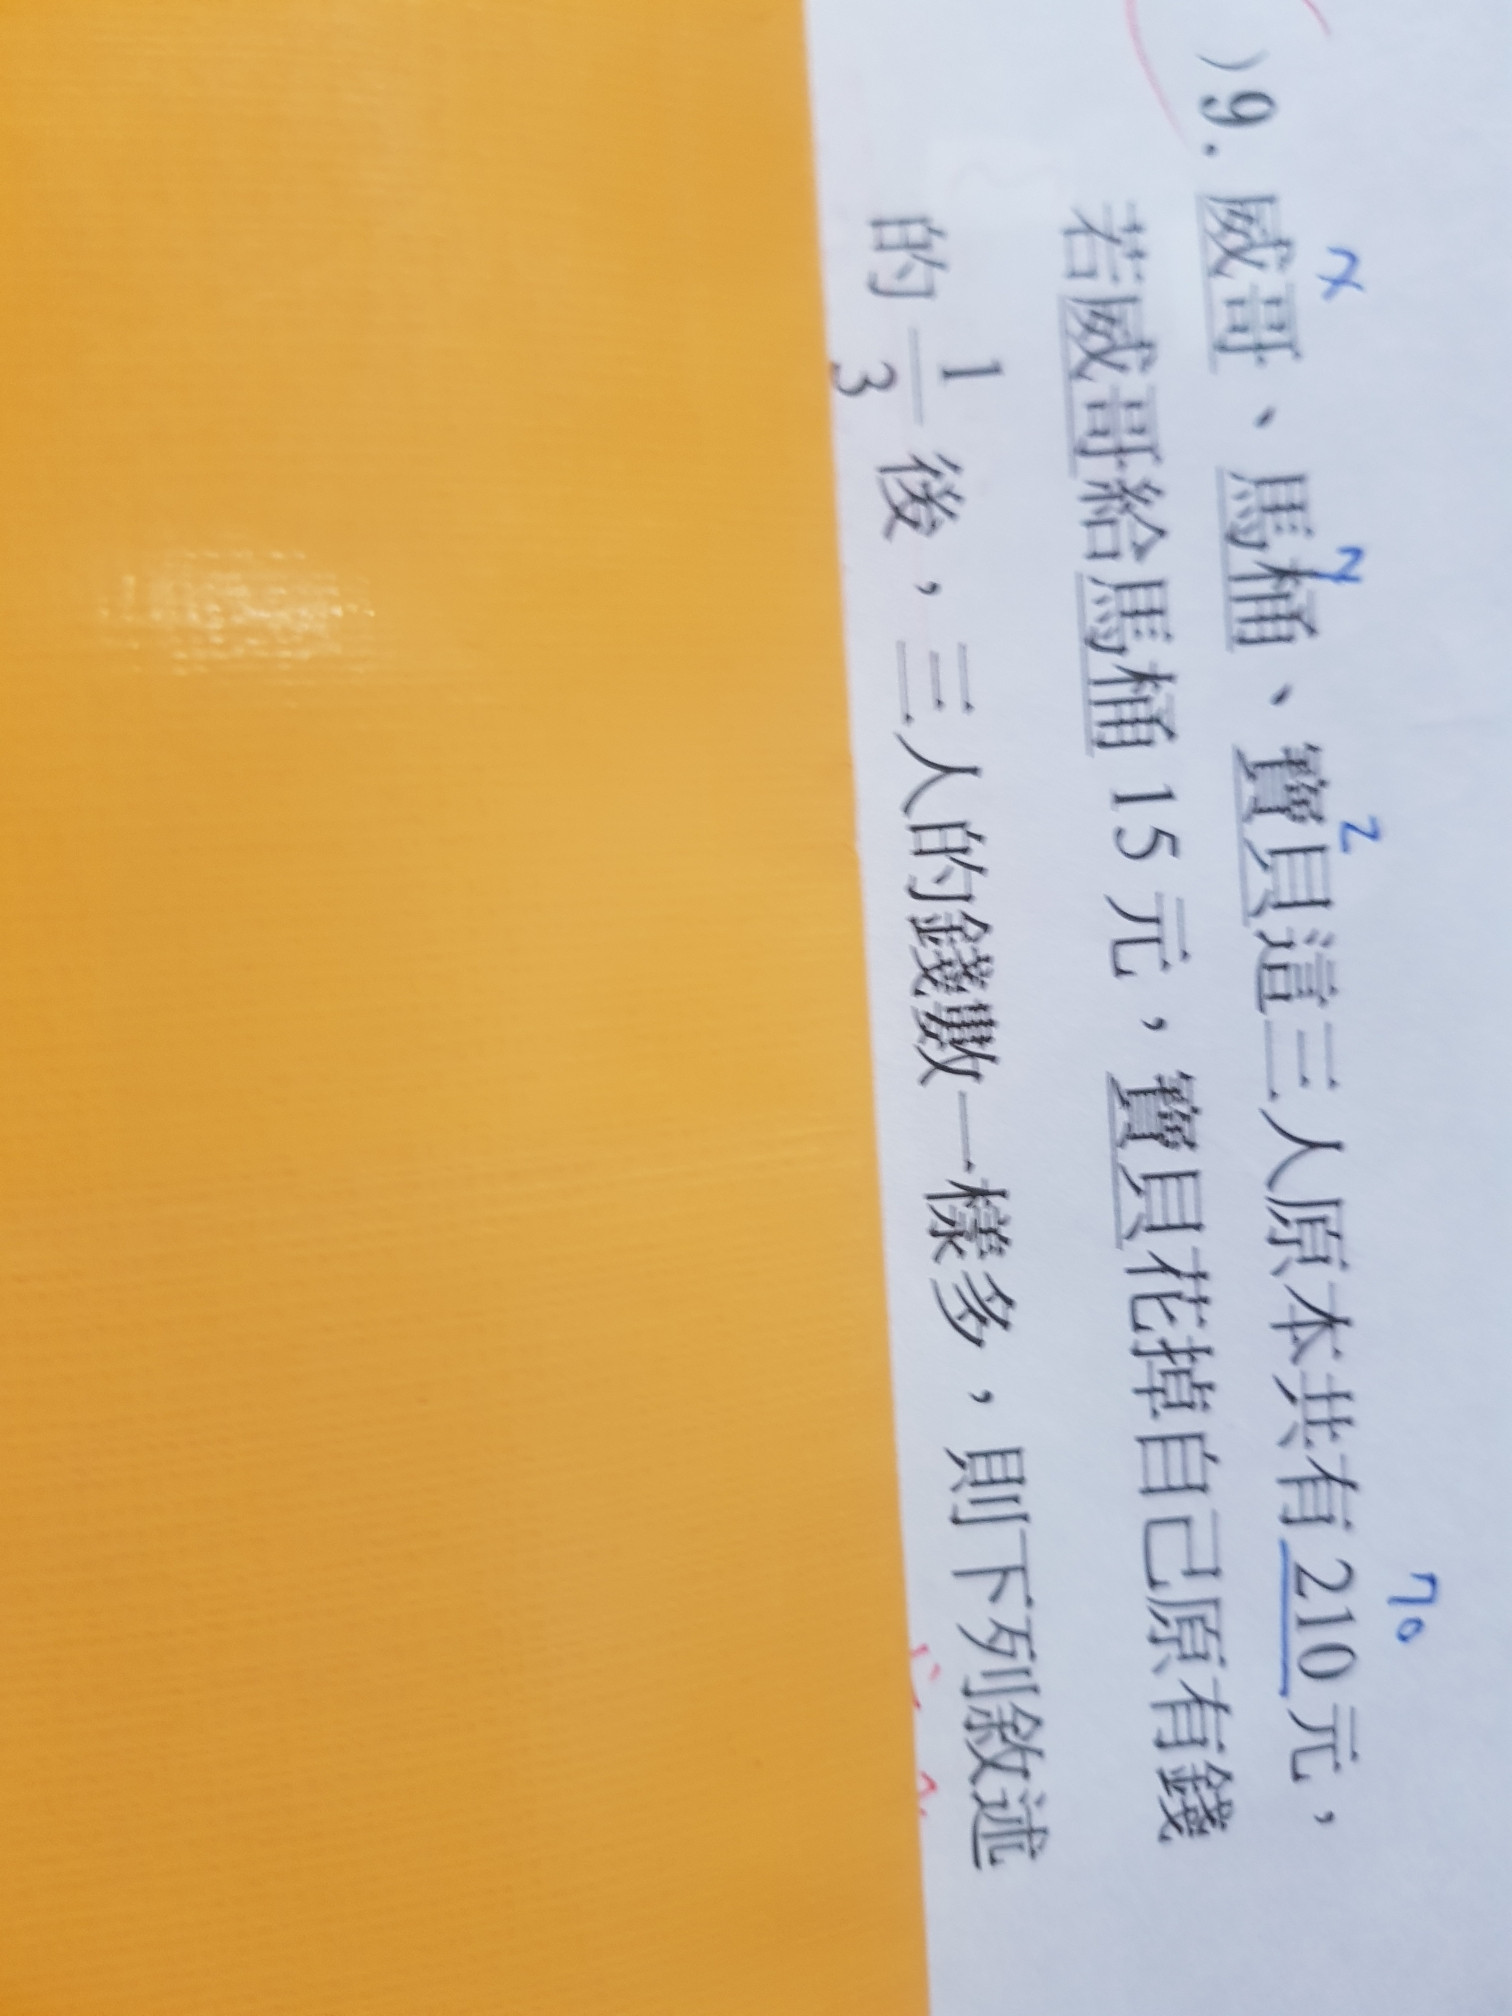 x y z 70
)9. 威哥、馬桶、寶貝這三人原本共有210元，
若威哥給馬桶15元，寶貝花掉自己原有錢
的1/3後，三人的錢數一樣多，則下列敘述